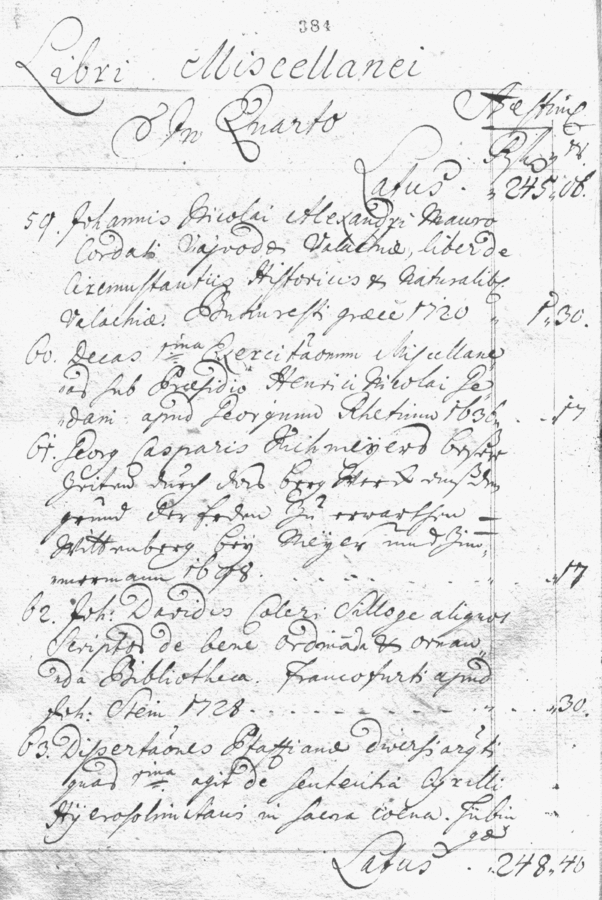 384
Libri Miscellanei
In Quarto
Latus . „ 245 „ 06.
59. Johannis Nicolai Alexandri Mauro
Cordati Vajvodæ Valachiæ, liber de
Circumstantiis Historicis & Naturalib9
Valachiæ. Bukuresti græcè 1720 „ 1 „ 30.
60. Decas 1ma Exercitaõnum Miscellane
arum sub Præsidio Henrici Nicolai Ge
dani apud Georgium Rhetium 1636 . . „ 17
61. Georg Casparis Kirhmeyers bessere
Zeiten durch das berg Werk aus dem
grund der Erden Zu erwarthen
Wittenberg bey Meyer und Zim„
mermann 1698. „ 17
62. Joh: Davidis Coleri Silloge aliquot
Scriptor de bene ordinãda & ornan„
nda Bibliotheca. Francofurti apud
Joh: Stein 1728 - - - „ 30.
63. Dissertaõnes Pfaffianæ diversi argti
quas 1ma agit de sententia Cyrilli
Hyerosolimitani in sacra coena. Tubin
gæ
Latus . „ 248 „ 40